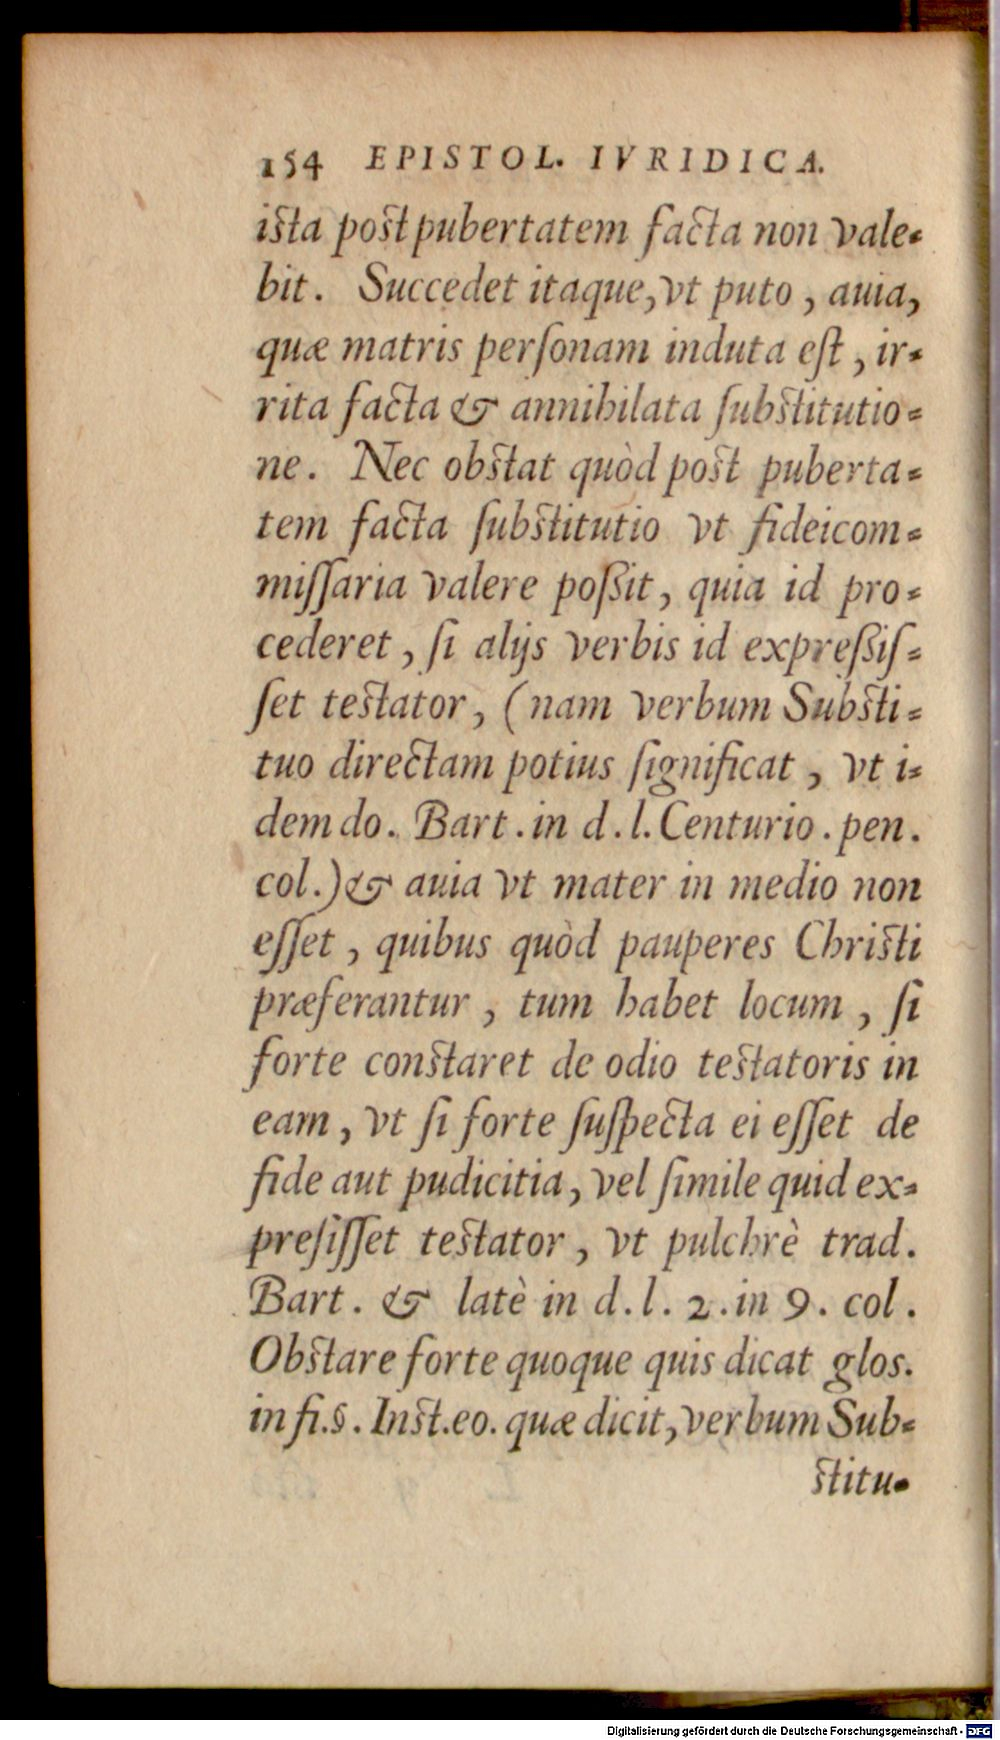 154 EPISTOL. IVRIDICA.
ista post pubertatem facta non vale-
bit. Succedet itaque, vt puto, auia,
quæ matris perſonam induta eſt, ir-
rita facta & annihilata ſubstitutio-
ne. Nec obstat quòd post puberta-
tem facta ſubstitutio vt fideicom-
miſſaria valere poßit, quia id pro-
cederet, ſi alijs verbis id expreßiſ-
ſet testator, (nam verbum Substi-
tuo directam potius ſignificat, vt i-
dem do. Bart. in d. l. Centurio. pen.
col.) & auia vt mater in medio non
eſſet, quibus quòd pauperes Christi
præferantur, tum habet locum, ſi
forte constaret de odio testatoris in
eam, vt ſi forte ſuſpecta ei eſſet de
fide aut pudicitia, vel ſimile quid ex-
preſiſſet testator, vt pulchrè trad.
Bart. & latè in d. l. 2. in 9. col.
Obstare forte quoque quis dicat glos.
in fi. §. Inst. eo. quæ dicit, verbum Sub-
stitu-
Digitalisierung gefördert durch die Deutsche Forschungsgemeinschaft - DFG